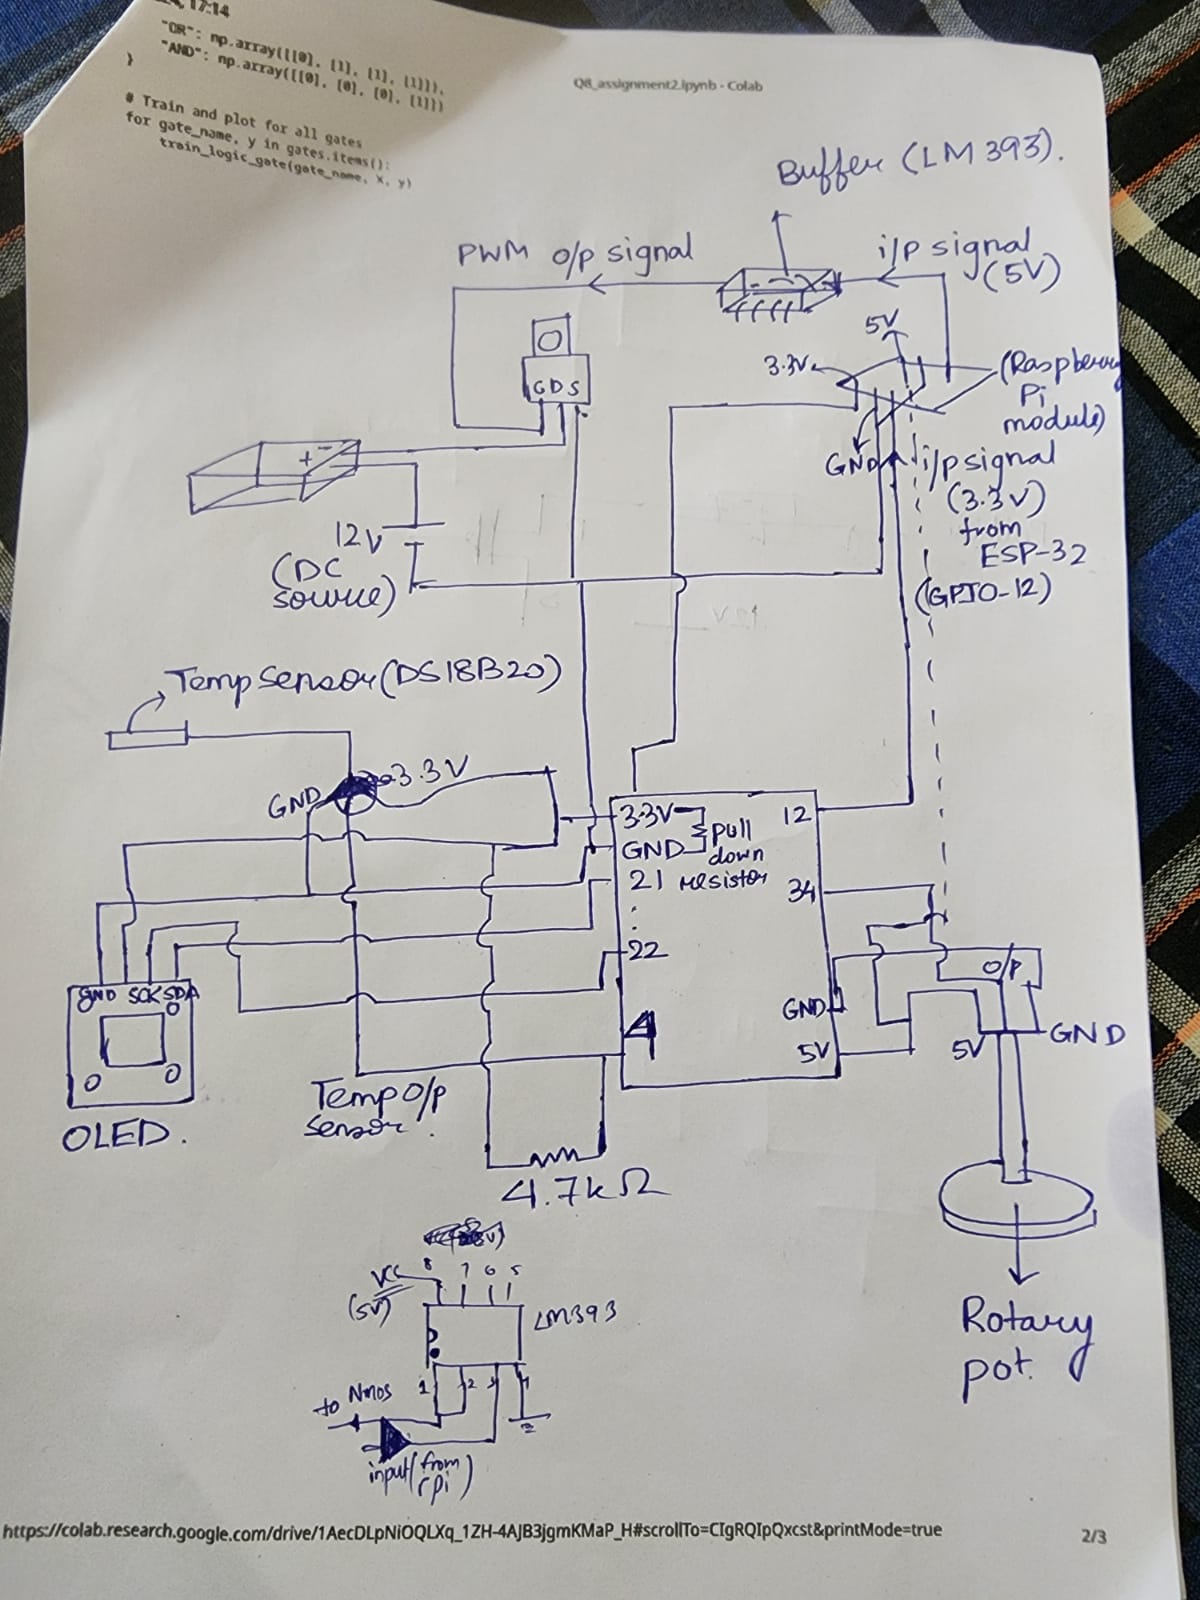 17:14
"OR": np.array([[0], [1], [1], [1]]),
"AND": np.array([[0], [0], [0], [1]])
}
# Train and plot for all gates
for gate_name, y in gates.items():
train_logic_gate(gate_name, X, y)
Q8_assignment2.ipynb - Colab
Buffer (LM393).
PWM o/p signal
i/p signal
(5V)
5V
3.3V
(Raspberry
Pi
module)
G D S
GND
i/p signal
(3.3V)
from
ESP-32
(GPIO-12)
+ -
12V
(DC
source)
Temp sensor (DS18B20)
3.3V
GND
3.3V
GND
21
22
pull
down
resistor
12
34
GND
5V
O/P
5V
GND
GND SCK SDA
OLED.
Temp o/p
sensor.
4.7kΩ
Rotary
pot.
8 7 6 5
VCC
(5V)
LM393
1 2 3 4
to Nmos
input (from
rpi)
https://colab.research.google.com/drive/1AecDLpNiOQLXq_1ZH-4AJB3jgmKMaP_H#scrollTo=CIgRQIpQxcst&printMode=true
2/3